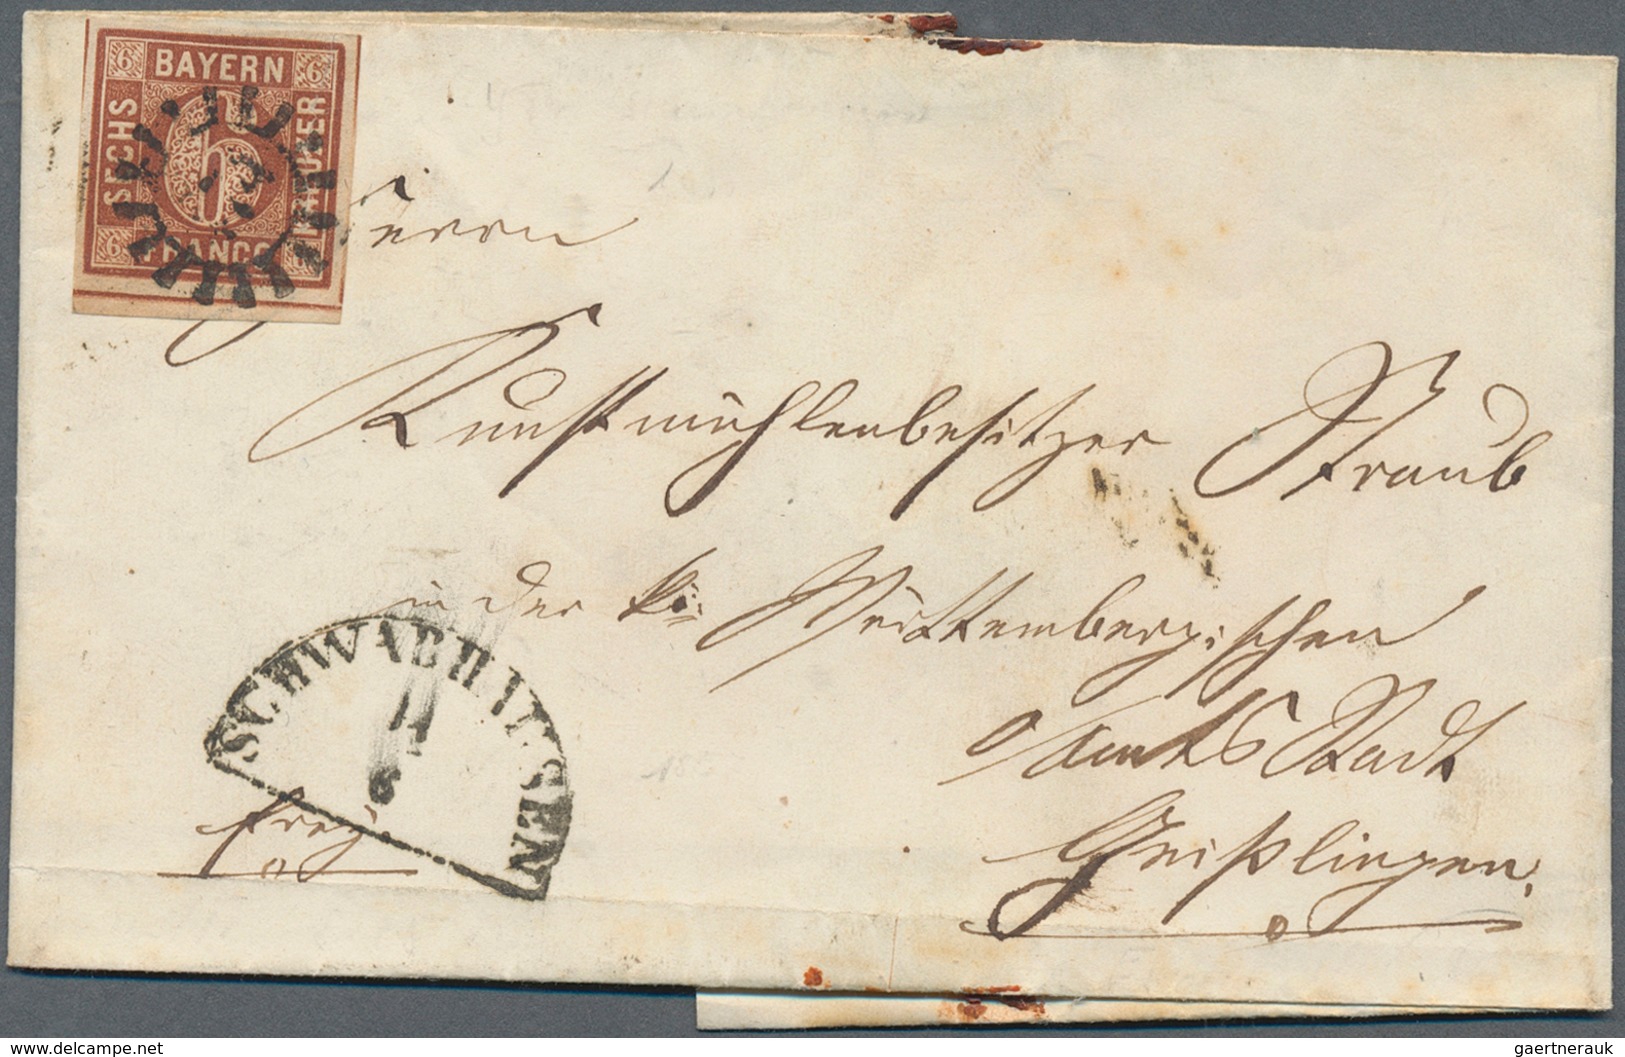 6 BAYERN 6
SECHS
KREUZER
6
6 FRANCO
Herrn
Kunstmühlenbesitzer Straub
in der Württembergischen
Amts Stadt
Geißlingen.
SCHWABHAUSEN
11
6
frey.
www.delcampe.net
gaertnerauk